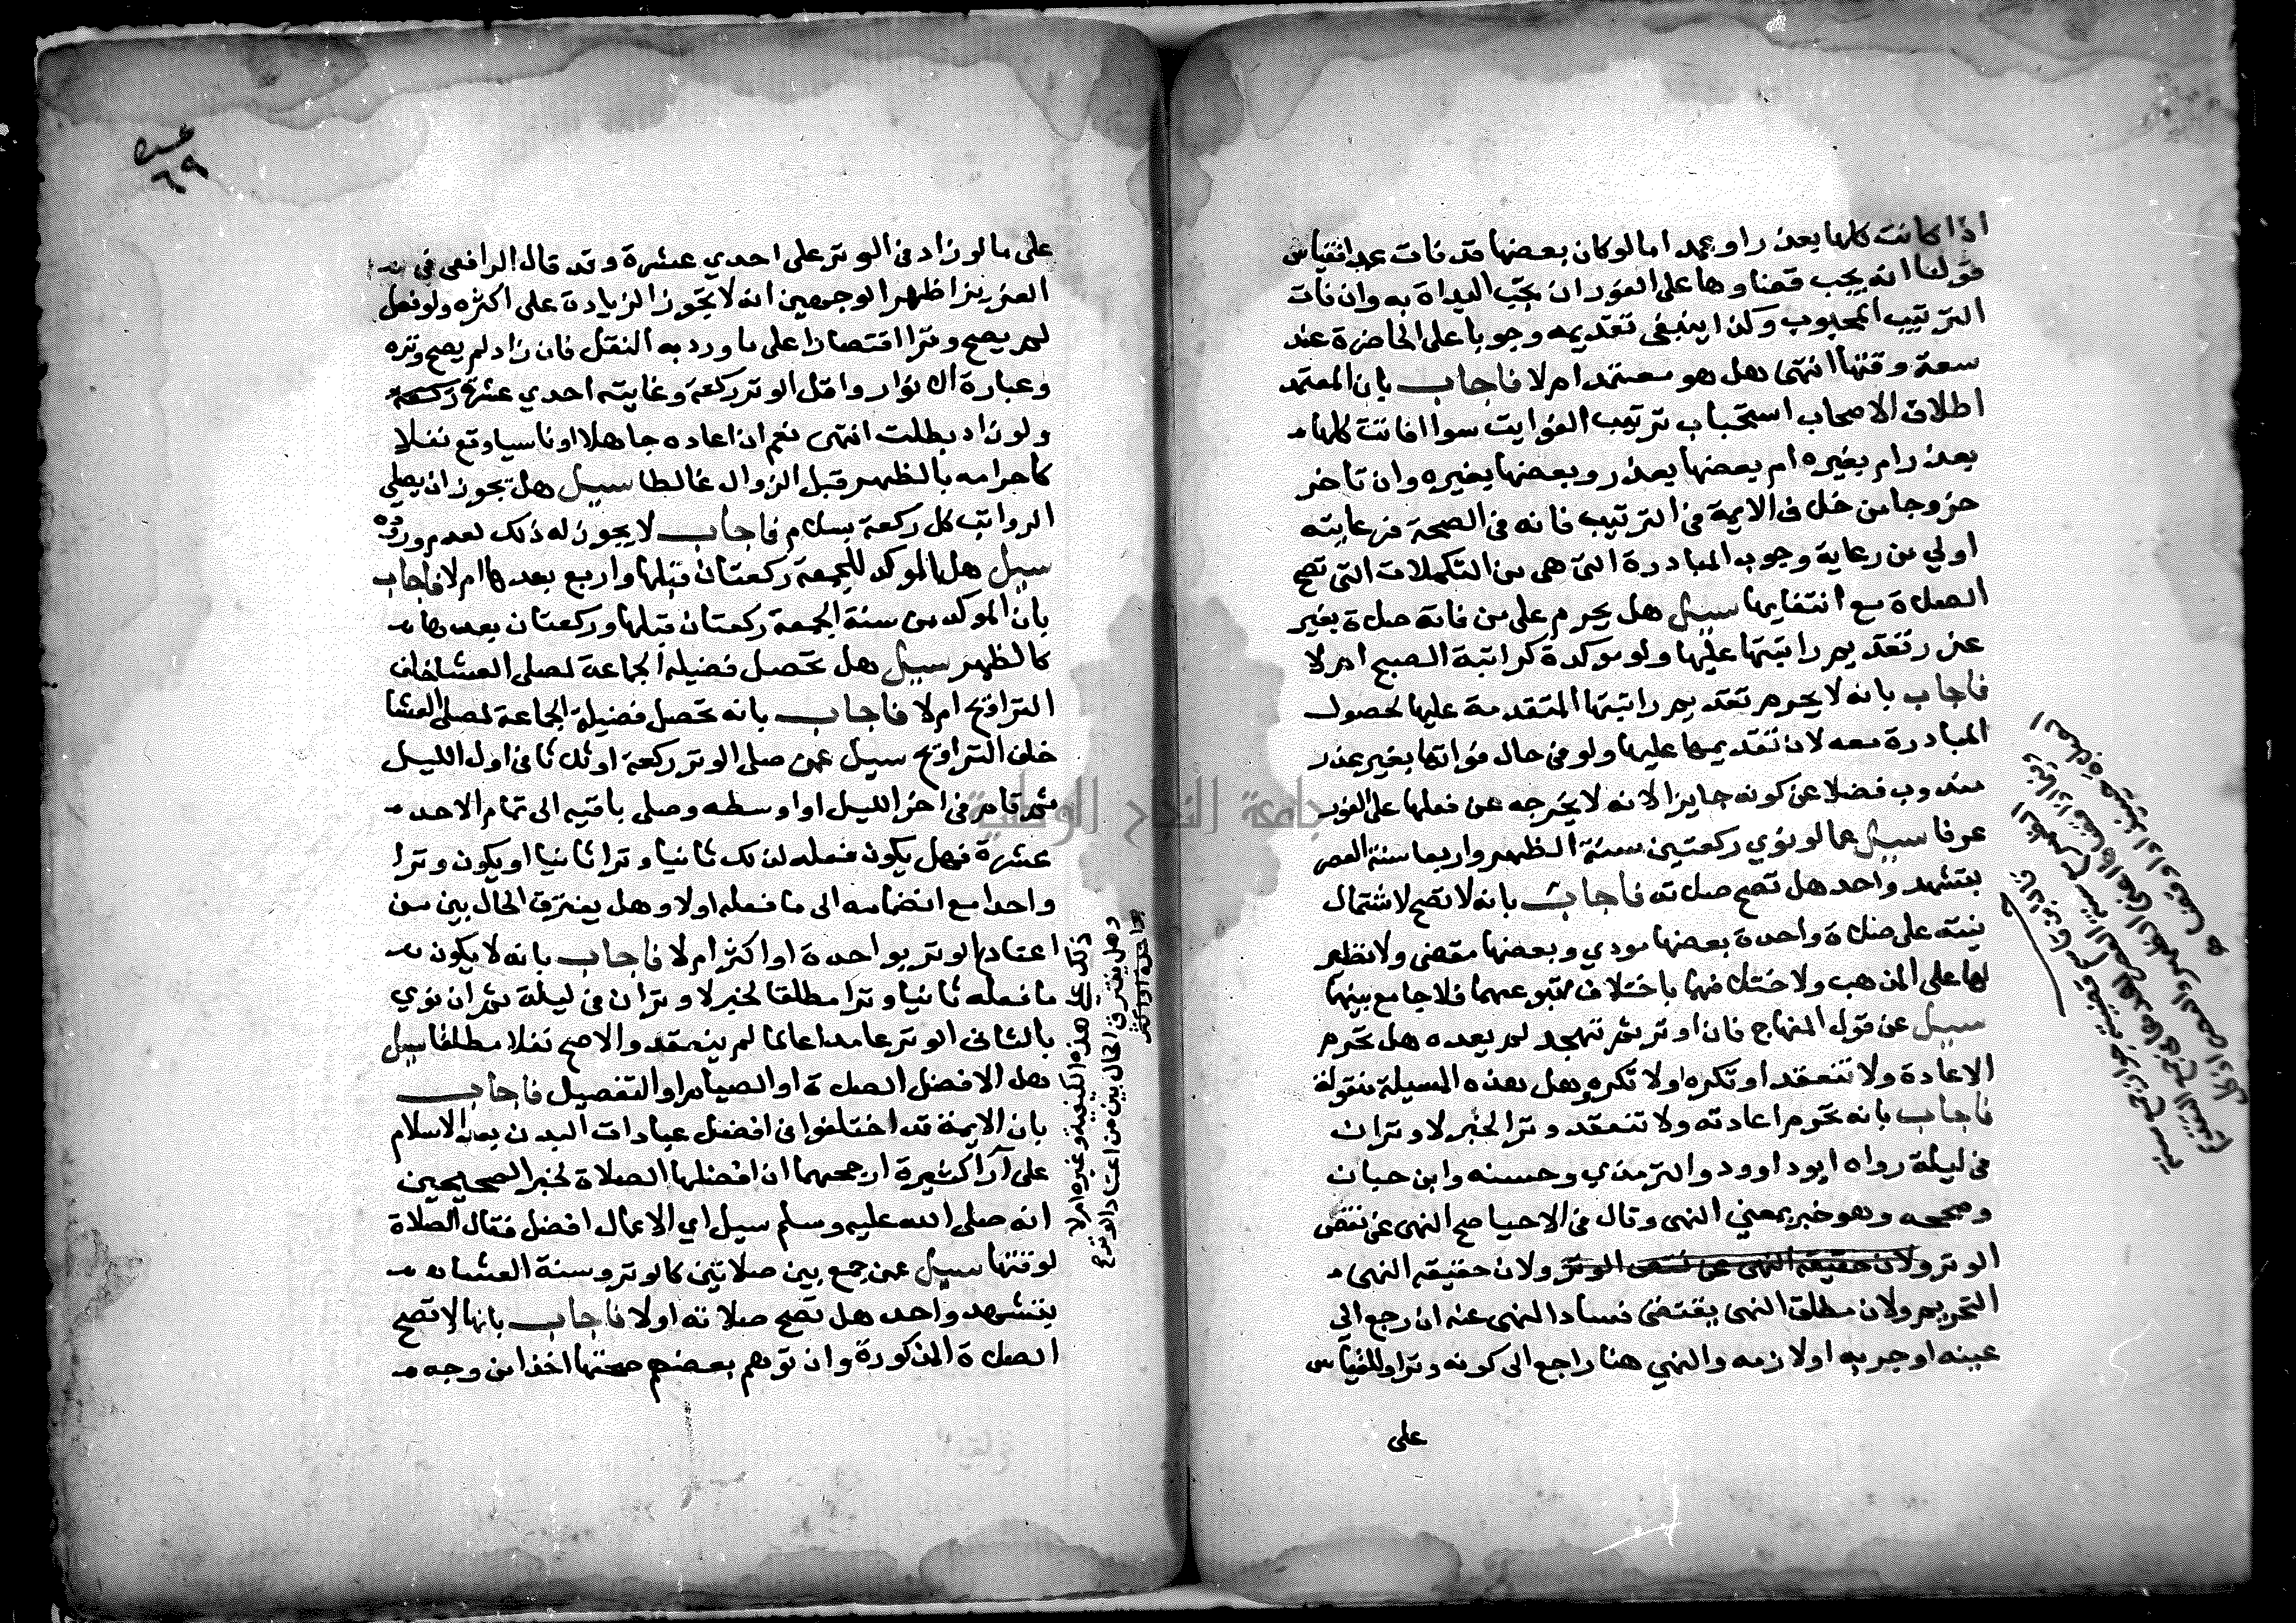 اذا كانت كلها بعذر او عمد اما لو كان بعضها قد فات عمدا فقياس
قولنا انه يجب قضاوها على الفور ان يجب البداة به وان فات
الترتيب المحبوب وكذا ينبغي تقديمه وجوبا على الحاضرة عند
سعة وقتها انتهى هل هو معتمد ام لا فاجاب بان المعتمد
اطلاق الاصحاب استحباب ترتيب الفوايت سوا افاتت كلها
بعذر ام بغيره ام بعضها بعذر وبعضها بغيره وان تاخر
خروجا من خلاف الايمة في الترتيب فانه في الصحة فرعايته
اولي من رعاية وجوب المبادرة التي هي من التكملات التي تصح
الصلاة مع انتفايها سيل هل يحرم على من فاتة صلاة بغير
عذر تقديم راتبتها عليها ولو موكدة كراتبة الصبح ام لا
فاجاب بانه لا يحرم تقديم راتبتها المتقدمة عليها لحصول
المبادرة معه لان تقديمها عليها ولو في حال فواتها بغير عذر
مندوب فضلا عن كونه جايزا لانه لا يخرجه عن فعلها على الفور
عرفا سيل عما لو نوي ركعتين سنة الظهر واربعا سنة العصر
بتشهد واحد هل تصح صلاته فاجاب بانه لا تصح لاشتمال
نيته على صلاة واحدة بعضها مودي وبعضها مقضى ولا نظير
لها على المذهب ولاختلافهما باختلاف متبوعهما فلا جامع بينهما
سيل عن قول المنهاج فان اوتر ثم تهجد لم يعده هل تحرم
الاعادة ولا تنعقد او تكره او لا تكره وهل هذه المسيلة منقولة
فاجاب بانه تحرم اعادته ولا تنعقد وترا لخبر لا وتران
في ليلة رواه ابو داوود والترمذي وحسنه وابن حبان
وصححه وهو خبر بمعني النهى وقال في الاحيا صح النهى عن نقض
الوتر ولان حقيقة النهى عن نقض الوتر ولان حقيقة النهى
التحريم ولان مطلق النهى يقتضى فساد المنهى عنه ان رجع الى
عينه او جزيه او لازمه والنهي هنا راجع الى كونه وترا وللقياس
على
على ما لو زاد في الوتر على احدي عشرة وقد قال الرافعي في
العزيز اظهر الوجهين انه لا تجوز الزيادة على اكثره ولو فعل
لم يصح وترا اقتصارا على ما ورد به النقل فان زاد لم يصح وتره
وعبارة الانوار واقل الوتر ركعة وغايته احدي عشرة ركعة
ولو زاد بطلت انتهى نعم ان اعاده جاهلا او ناسيا وقع نفلا
كاحرامه بالظهر قبل الزوال غالطا سيل هل تجوز ان يصلي
الرواتب كل ركعة بسلام فاجاب لا يجوز له ذلك لعدم وروده
سيل هل الموكد للجمعة ركعتان قبلها واربع بعدها ام لا فاجاب
بان الموكد من سنة الجمعة ركعتان قبلها وركعتان بعدها
كالظهر سيل هل تحصل فضيلة الجماعة لمصلي العشا خلف
التراويح ام لا فاجاب بانه تحصل فضيلة الجماعة لمصلى العشا
خلف التراويح سيل عمن صلى الوتر ركعة او ثلاثا في اول الليل
ثم قام في اخر الليل او اوسطه وصلى باقيه الى تمام الاحد
عشرة فهل يكون فعله لذلك ثانيا وترا ثانيا او يكون وترا
واحدا مع انضمامه الى ما فعله اولا وهل يفترق الحال بين من
اعتاد الوتر بواحدة او اكثر ام لا فاجاب بانه لا يكون
ما فعله ثانيا وترا مطلقا لخبر لا وتران في ليلة ثم ان نوي
بالثانى الوتر عامدا عالما لم ينعقد والاصح نفلا مطلقا سيل
هل الافضل الصلاة او الصيام او التفصيل فاجاب
بان الايمة قد اختلفوا في افضل عبادات البدن بعد الاسلام
على آرا كثيرة ارجحهما ان افضلها الصلاة لخبر الصحيحين
انه صلى الله عليه وسلم سيل اي الاعمال افضل فقال الصلاة
لوقتها سيل عمن جمع بين صلاتين كالوتر وسنة العشا
بتشهد واحد هل تصح صلاته او لا فاجاب بانها لا تصح
الصلاة المذكورة وان توهم بعضهم صحتها اخذا من وجه
وهل يفترق الحال بين من اعتاد الوتر
بواحدة او اكثر
جامعة النجاح الوطنية